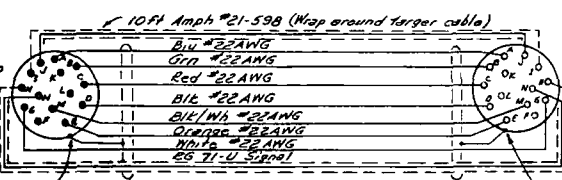 10ft Amph #21-598 (Wrap around larger cable)
Blu #22AWG
Grn #22AWG
Red #22AWG
Blk #22AWG
Blk/Wh #22AWG
Orange #22AWG
White #22AWG
RG 71-U Signal
A
B
C
D
E
F
H
J
K
L
M
N
A
B
C
D
E
F
G
J
K
L
M
N